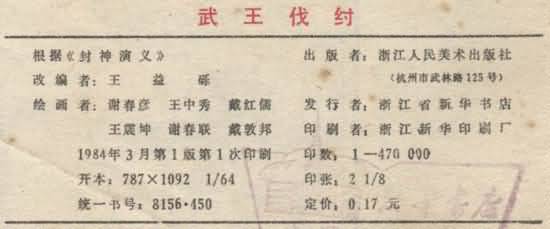 武王伐纣
根据《封神演义》
改编者：王益砾
绘画者：谢春彦 王中秀 戴红儒
王震坤 谢春联 戴敦邦
1984年3月第1版第1次印刷
开本：787×1092 1/64
统一书号：8156·450
出版者：浙江人民美术出版社
（杭州市武林路125号）
发行者：浙江省新华书店
印刷者：浙江新华印刷厂
印数：1—470 000
印张：2 1/8
定价：0.17元
书店